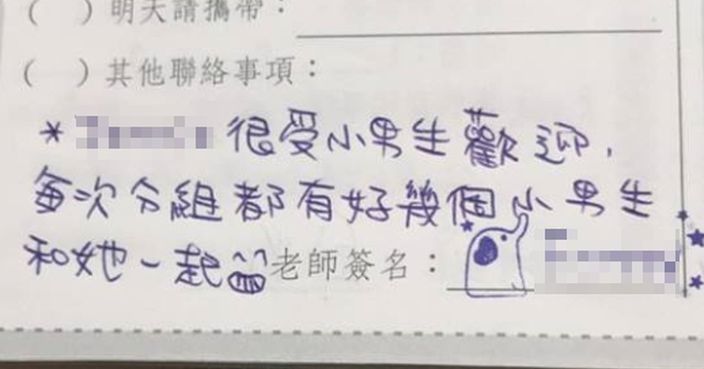 ( ) 明天請攜帶：
( ) 其他聯絡事項：
* 很受小男生歡迎，
每次分組都有好幾個小男生
和她一起 老師簽名：